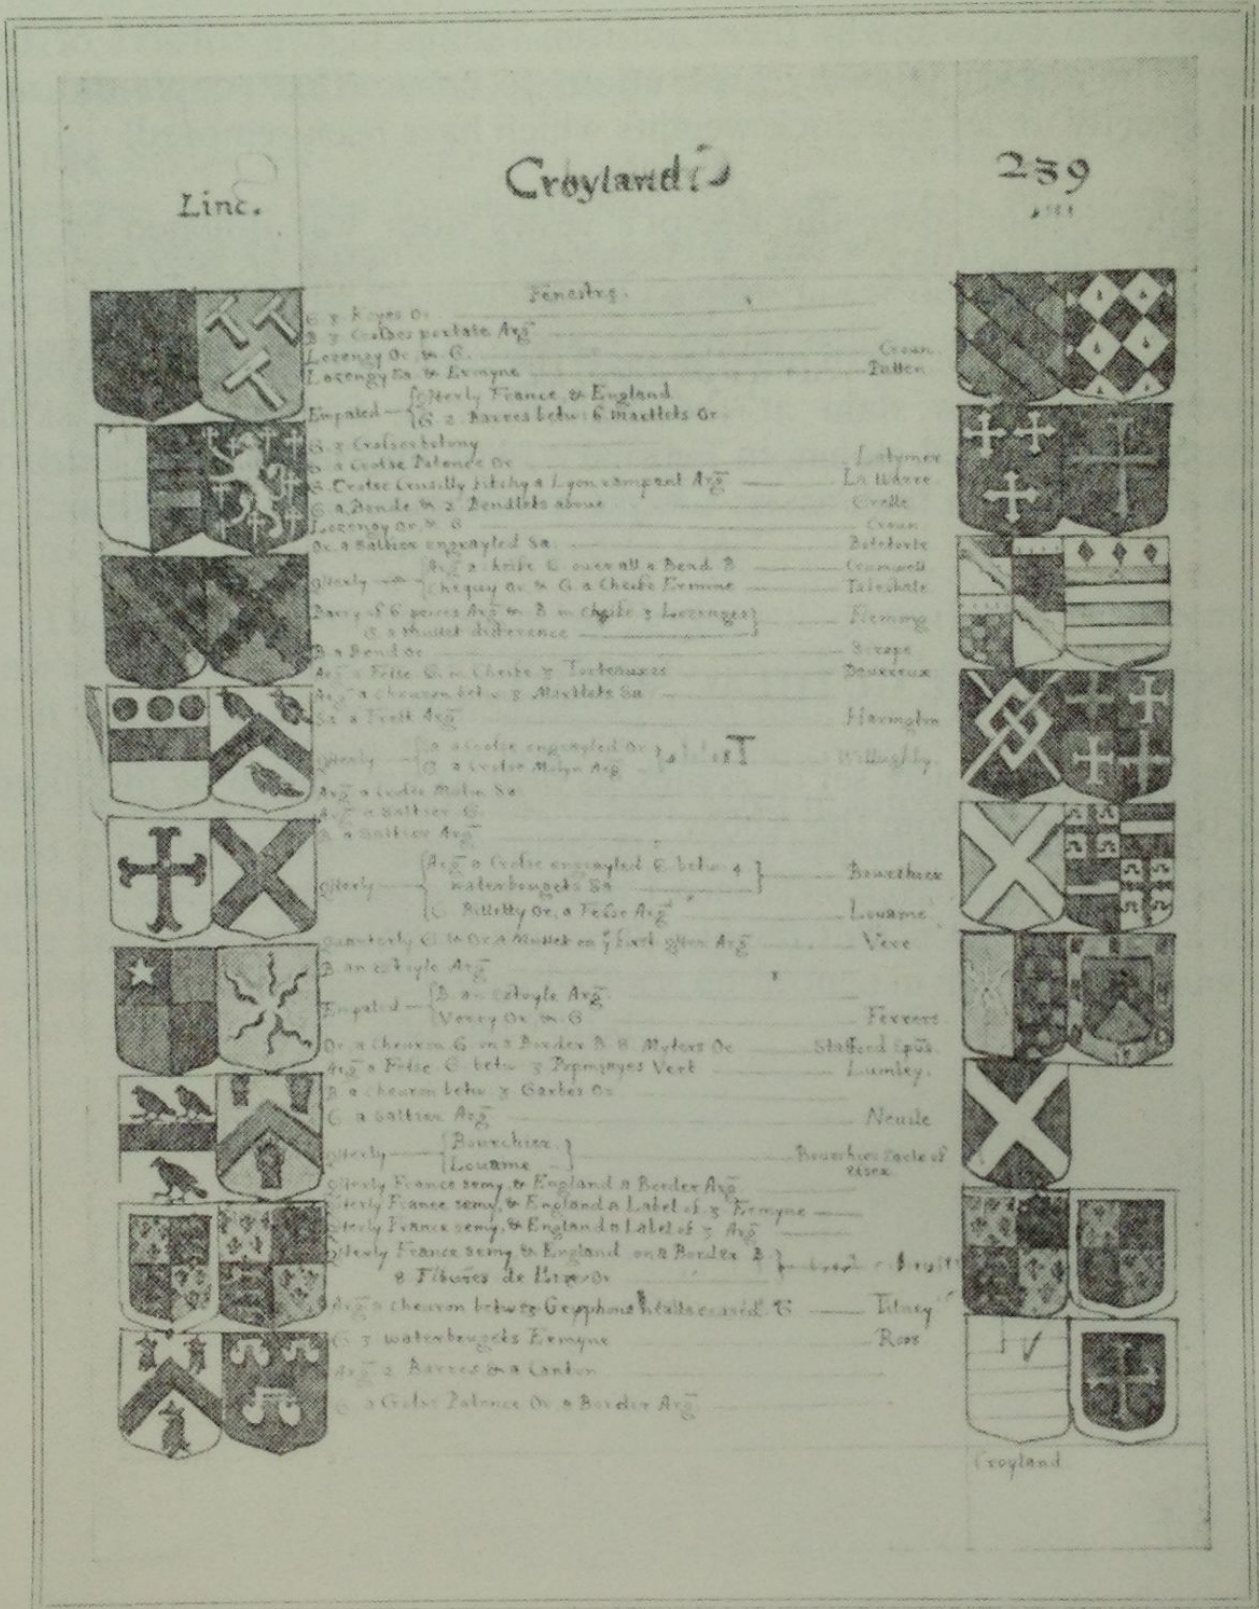 Linc.
Croyland
239
Fenestrę.
G 3 Keyes Or
B 3 Crosses portate Arg
Lozengy Or & G. Croun
Lozengy Sa & Ermyne Patten
Empaled Qterly France & England
G 2 Barres betw: 6 Martlets Or
G 3 Crosses botony
G a Crosse Patonce Or Latymer
G Crosse Crusilly fitchy a Lyon rampant Arg La Warre
G a Bende & 2 Bendlets above Grelle
Lozengy Or & G Croun
Or a Saltier engrayled Sa Botetorte
Qterly Arg a cheife G over all a Bend B Cromwell
Chequy Or & G a Cheife Ermine Tateshale
Barry of 6 peeces Arg & B in cheife 3 Lozenges
G a Mullet difference Fleming
B a Bend Or Scrope
Arg a Fesse G in Cheife 3 Torteauxes Deuereux
Arg a cheuron betw: 3 Martlets Sa
Sa a Frett Arg Harington
Qterly a Crosse engrayled Or
G a Crosse Molyn Arg Willughby
Arg a Crosse Molin Sa
Arg a Saltier G
B a Saltier Arg
Qterly Arg a Crosse engrayled G betw: 4
waterbougets Sa Bourchier
G Billetty Or, a Fesse Arg Louaine
Quarterly G & Or a Mullet on ye first Qter Arg Vere
B an estoyle Arg
Empaled B. an estoyle Arg
Verry Or & G Ferrers
Or a cheuron G on a Border B 8 Myters Or Stafford Epūs.
Arg a Fesse G betw 3 Popinjayes Vert Lumley.
B a cheuron betw 3 Garbes Or
G a Saltier Arg Neuile
Qterly Bourchier
Louaine Bourchier Earle of
Essex
Qterly France semy, & England a Border Arg
Qterly France semy, & England a Label of 3 Ermyne
Qterly France semy, & England a Label of 3 Arg
Qterly France semy & England on a Border B
8 de Or
Arg a cheuron betw 3 Gryphons heads erased G Tilney
G 3 waterbougets Ermyne Roos
Arg 2 Barres & a Canton
G a Crosse Patonce Or a Border Arg
Croyland